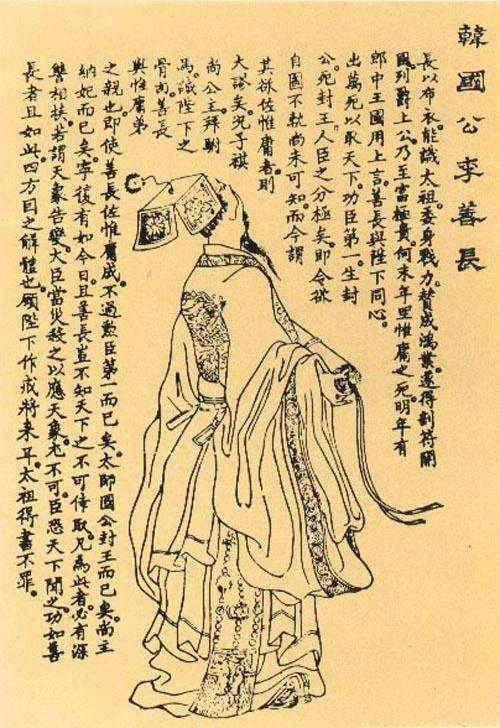 韓國公李善長
長以布衣能識太祖。委身戰力。贊成鴻業。遂得剖符開
國列爵上公。乃至富極貴。何末年里惟庸之死。明年有
郎中王國用上言。善長與陛下同心。
出萬死以取天下。功臣第一。生封
公死封王。人臣之分極矣。即令欲
自圖不軌。尚未可知。而今謂
其欲佐惟庸者。則
大謬矣。況子祺
尚公主。拜駙
馬。誠陛下之
骨肉。善長
與惟庸。弟
之親也。即使善長佐惟庸成。不過勳臣第一而已矣。太師國公封王而已矣。尚主
納妃而已矣。寧復有如今日。且善長豈不知天下之不可倖取。凡為此者。必有深
讐相挾。若謂天象告變。大臣當災。殺之以應天象。尤不可。臣恐天下聞之。功如善
長者且如此。四方因之解體也。願陛下作戒將來耳。太祖得書不罪。